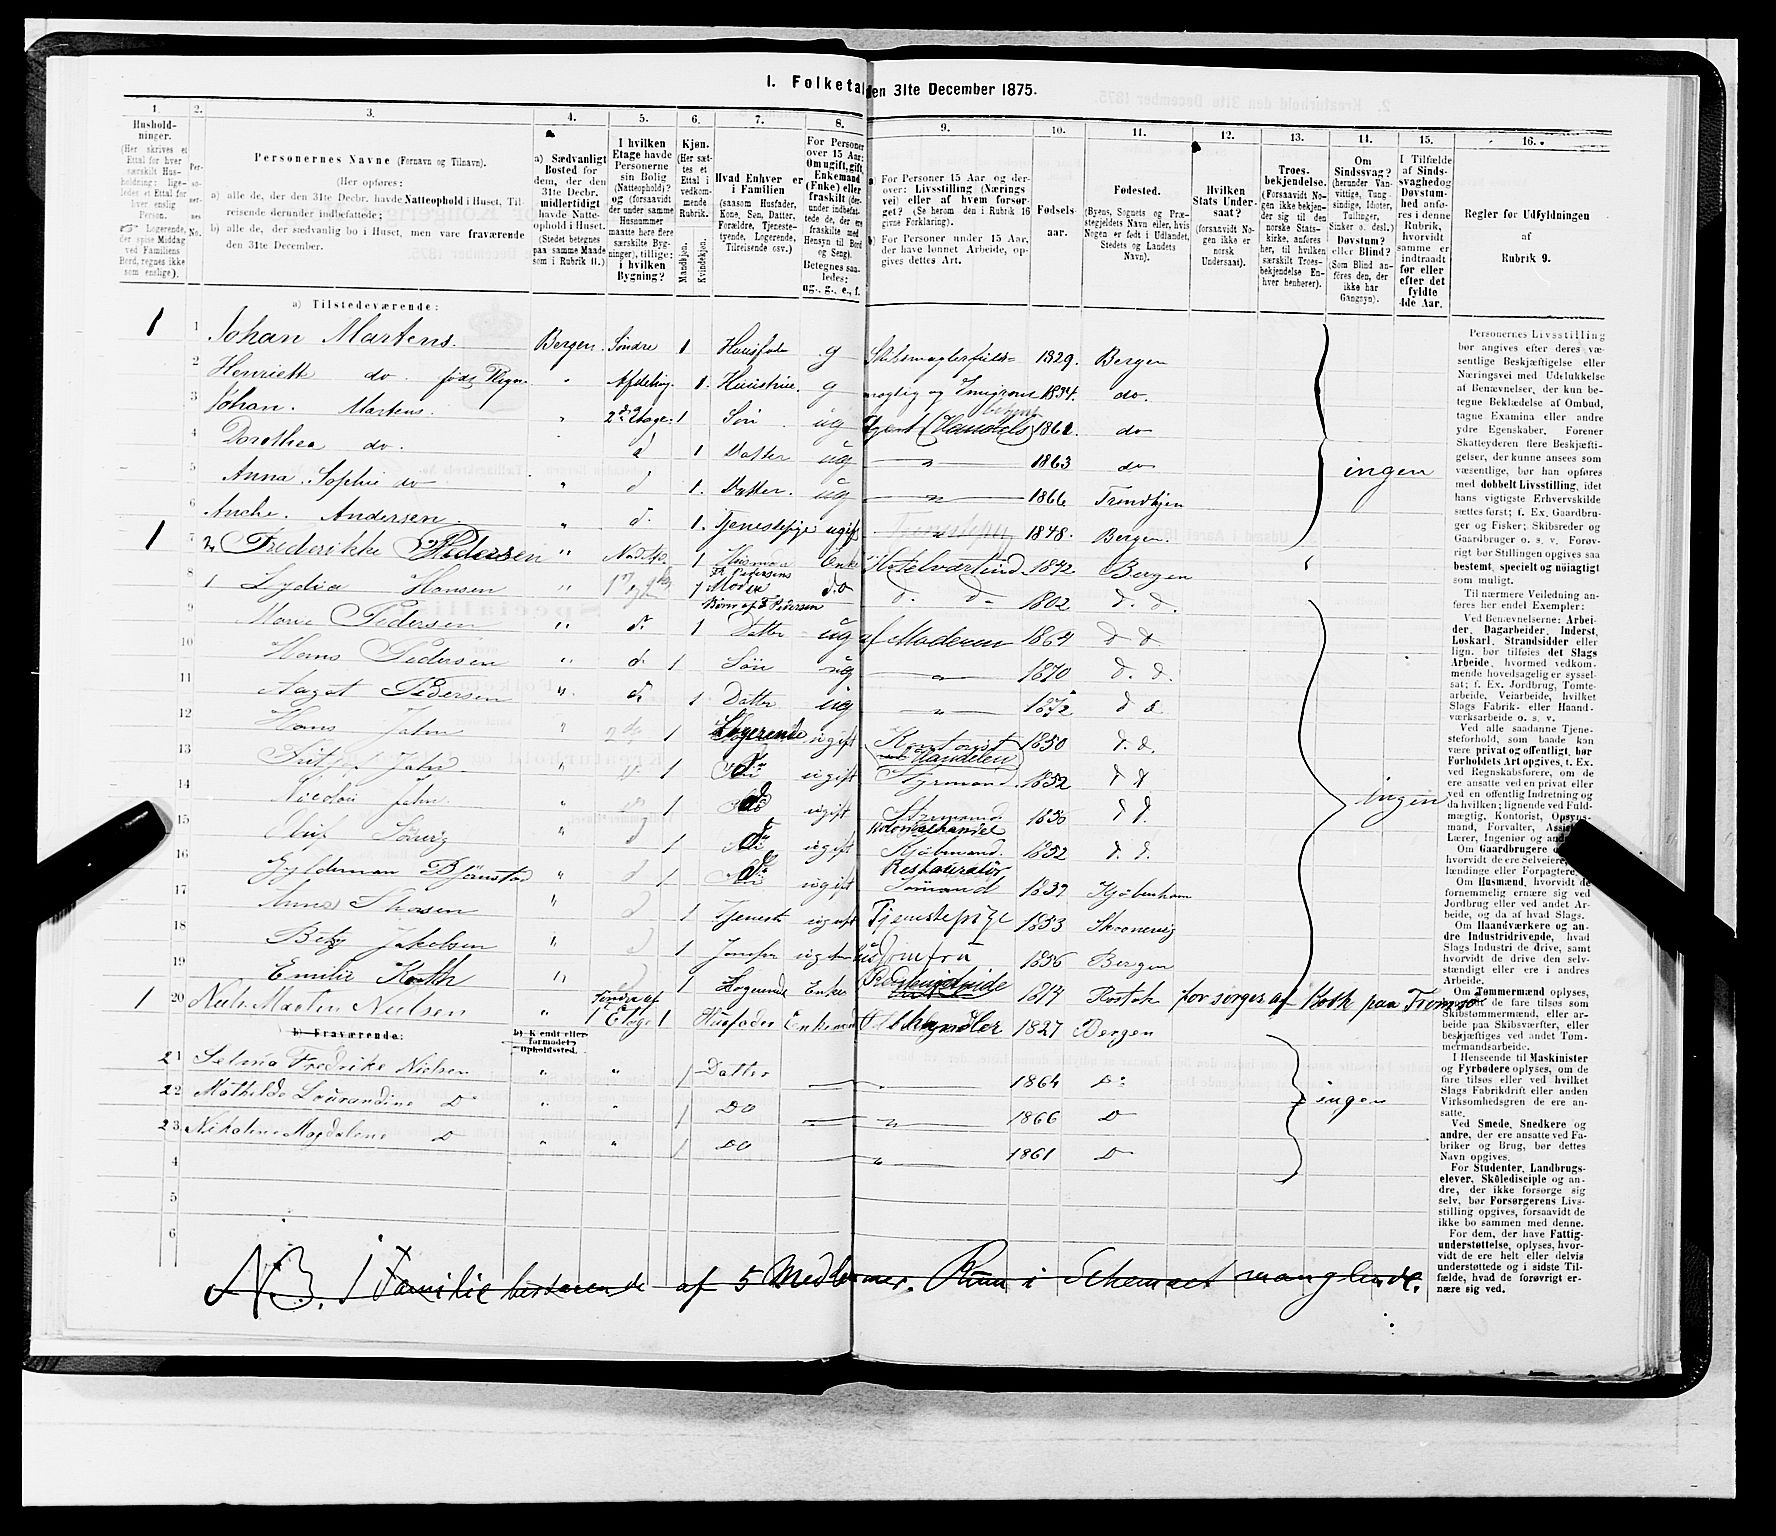 I. Folketal den 31te December 1875.
1. 2. 3. 4. 5. 6. 7. 8. 9. 10. 11. 12. 13. 14. 15. 16.
Hushold-
ninger.
(Her skrives et
Ettal for hver
særskilt Hus-
holdning; lige-
ledes et Ettal for
hver enslig
Person.
Logerende,
der spise Middag
ved Familiens
Bord, regnes ikke
som enslige).
Per-
so-
ner-
nes
No.
Personernes Navne (Fornavn og Tilnavn).
(Her opføres:
a) alle de, der den 31te Decbr. havde Natteophold i Huset, Til-
reisende derunder indbefattede;
b) alle de, der sædvanlig bo i Huset, men vare fraværende
den 31te December.
a) Sædvanligt
Bosted for
dem, der den
31te Decbr.
midlertidigt
havde Natte-
ophold i Huset.
(Stedet betegnes
paa samme Maade
som i Rubrik 11.)
I hvilken
Etage havde
Personerne
sin Bolig
(Natteophold)?
og (forsaavidt
der under samme
Husnummer
maatte høre flere
særskilte Byg-
ninger), tillige:
i hvilken
Bygning?
Kjøn.
(Her sæt-
tes et
Ettal i
vedkom-
mende
Rubrik.
Mandkjøn.
Kvindekjøn.
Hvad Enhver er
i Familien
(saasom Husfader,
Kone, Søn, Datter,
Forældre, Tjeneste-
tyende, Logerende,
Tilreisende osv.)
For Personer
over 15 Aar:
Om ugift, gift,
Enkemand
(Enke) eller
fraskilt (der-
under indbefat-
tede de, der ere
fraskilte med
Hensyn til Bord
og Seng).
Betegnes saa-
ledes:
ug., g., e., f.
a) For Personer 15 Aar og der-
over: Livsstilling (Nærings-
vei) eller af hvem forsør-
get? (Se herom den i Rubrik 16
givne Forklaring).
b) For Personer under 15 Aar,
der have lønnet Arbeide, op-
gives dettes Art.
Fødsels-
aar.
Fødested.
(Byens, Sognets og Præ-
stegjeldets Navn eller, hvis
Nogen er født i Udlandet,
Stedets og Landets
Navn).
Hvilken
Stats Under-
saat?
(forsaavidt No-
gen ikke er
norsk
Undersaat).
Troes-
bekjendelse.
(Forsaavidt No-
gen ikke bekjen-
der sig til den
norske Stats-
kirke, anføres
her, til hvilken
særskilt Troes-
bekjendelse En-
hver henhører).
Om
Sindssvag?
(herunder Van-
vittige, Tung-
sindige, Idioter,
Tullinger,
Sinker o. desl.)
Døvstum?
eller Blind?
(Som Blind an-
føres den, der
ikke har
Gangsyn).
I Tilfælde
af Sinds-
svaghed og
Døvstum-
hed anfø-
res i denne
Rubrik,
hvorvidt
samme er
indtraadt
før eller
efter det
fyldte
4de Aar.
Regler for Udfyldningen
af
Rubrik 9.
a) Tilstedeværende:
1 1 Johan Martens. Bergen Søndre 1 Huusfader g 1829. Bergen
2 Henriett do. født " Afdeling. 1. Huustrue. g og 1834. do.
3 Johan. Martens. " 2den Etage. 1 Søn ug Agent (Handels) 1861. do
4 Dorothea do. d 1 Datter ug " 1863 do
5 Anna Sophie do " d 1. Datter. ug " 1866 Trondhjem ingen
6 Anche. Andersen. " d. 1. Tjenestepige ugift " 1848. Bergen
1 7 Frederikke Pedersen " 1 Enke Hotelværtinde 1842 Bergen
8 Lydia Hansen " 1 Fr Pedersens Moder do d. d. 1802 d. d.
Børn af F Pedersen
9 Marie Pedersen " d. 1 Datter ug af Moderen 1864 d d.
10 Hans Pedersen " d. 1 Søn ug " 1870 d. d.
11 Aagot Pedersen " d. 1 Datter ug " 1872 d d
12 Hans Jahn " 1 Logerende ugift Kontorist Handelen 1850 d. d.
13 Jahn " 1 do ugift Styrmand 1852 d d
14 Nicolai Jahn. " 1 do ugift Styrmand 1850 d d. ingen
15 Oluf " d 1 do ugift Kolonialhandel Kjøbmand. 1852 d. d.
16 Gyldeman Bjørnstad " d 1 do ugift Restauratør Sømand 1839 Kjøbenhavn
17 Anna " d 1 Tjenest ugift Tjenestepige 1853 Skonevig
18 Betzy Jakobsen " d 1 Jomfru ugift Jomfru 1856 Bergen
19 Emilie Koth " 1 Logerende Enke 1814 Rostok forsørges af Koth paa Tromsø
1 20 Niels Martin Nielsen " Søndre af 1 Etage 1 Husfader Enkemand 1827 Bergen
b) Fraværende: b) Kendt eller
formodet
Opholdssted.
21 Selma Fredrikke Nielsen " " 1 Datter " 1864 Do
22 Mathilde Lourandine Do " " 1 DO " 1866 D ingen
23 Nikoline Magdalene D " " 1 DO " 1861 D
4
5
6
NB. 1 Familie bestaaende af 5 Medlemmer. Rum i Schemaet manglende.
Personernes Livsstilling
bør angives efter deres væ-
sentlige Beskjæftigelse eller
Næringsvei med Udelukkelse
af Benævnelser, der kun be-
tegne Beklædelse af Ombud,
tagne Examina eller andre
ydre Egenskaber. Forener
Skatteyderen flere Beskjæfti-
gelser, der kunne ansees som
væsentlige, bør han opføres
med dobbelt Livsstilling, idet
hans vigtigste Erhvervskilde
sættes først; f. Ex. Gaardbru-
ger og Fisker; Skibsreder og
Gaardbruger o. s. v. Forøv-
rigt bør Stillingen opgives saa
bestemt, specielt og nøiagtigt
som muligt.
Til nærmere Veiledning an-
føres her endel Exempler:
Ved Benævnelserne: Arbei-
der, Dagarbeider, Inderst,
Løskarl, Strandsidder eller
lign. bør tilføies det Slags
Arbeide, hvormed vedkom-
mende hovedsagelig er syssel-
sat; f. Ex. Jordbrug, Tomte-
arbeide, Veiarbeide, hvilket
Slags Fabrik- eller Haand-
værksarbeide o. s. v.
Ved alle saadanne Tjene-
steforhold, som baade kan
være privat og offentligt, bør
Forholdets Art opgives, t. Ex.
ved Regnskabsførere, om de
ere ansatte ved en privat eller
ved en offentlig Indretning og
da hvilken; lignende ved Fuld-
mægtig, Kontorist, Opsyns-
mand, Forvalter,
Lærer, Ingeniør og
Om Gaardbrugere
hvorvidt de ere Selveiere,
lændinge eller Forpagtere,
Om Husmænd, hvorvidt de
fornemmelig ernære sig ved
Jordbrug eller ved andet Ar-
beide, og da af hvad Slags.
Om Haandværkere og an-
dre Industridrivende, hvad
Slags Industri de drive, samt
hvorvidt de drive den selv-
stændigt eller ere i andres
Arbeide.
Om Tømmermænd oplyses,
om de fare tilsøs som
Skibstømmermænd, eller ar-
beide paa Skibsværfter, eller
beskjæftiges ved andet Tøm-
mermandsarbeide.
I Henseende til Maskinister
og Fyrbødere oplyses, om de
fare tilsøs eller ved hvilket
Slags Fabrikdrift eller anden
Virksomhedsgren de ere an-
satte.
Ved Smede, Snedkere og
andre, der ere ansatte ved Fa-
briker og Brug, bør dettes
Navn opgives.
For Studenter, Landbrugs-
elever, Skoledisciple og an-
dre, der ikke forsørge sig
selv, bør Forsørgerens Livs-
stilling opgives, forsaavidt de
ikke bo sammen med denne.
For dem, der have Fattig-
understøttelse, oplyses, hvor-
vidt de ere helt eller delvis
understøttede og i sidste Til-
fælde, hvad de forøvrigt er-
nære sig ved.